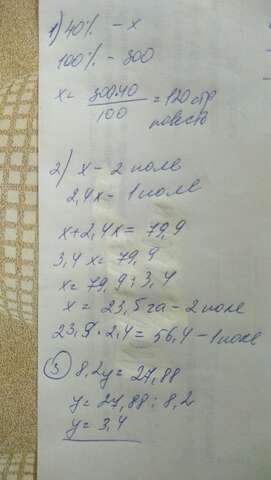 1) 40% - x
100% - 300
x = 300·40 / 100 = 120 стр
повесть
2) x - 2 поле
2,4x - 1 поле
x + 2,4x = 79,9
3,4x = 79,9
x = 79,9 : 3,4
x = 23,5 га - 2 поле
23,9 · 2,4 = 56,4 - 1 поле
3) 8,2y = 27,88
y = 27,88 : 8,2
y = 3,4